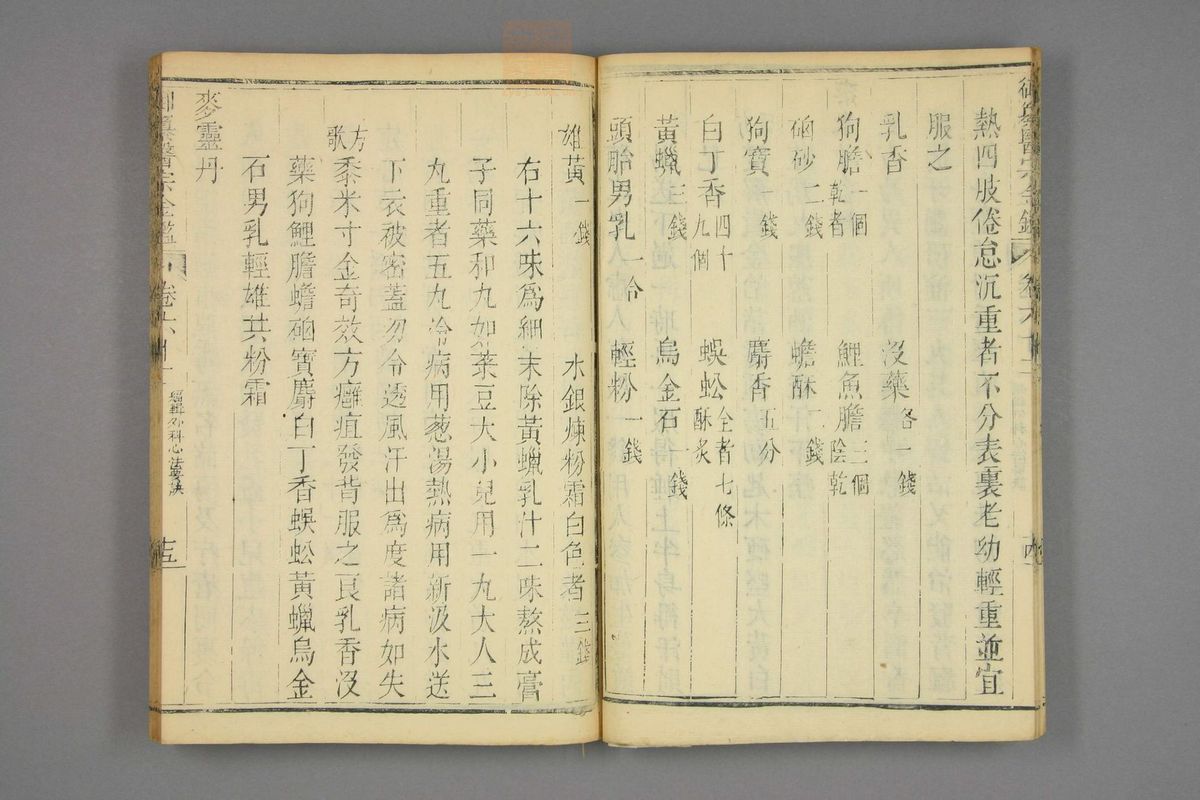 熱四肢倦怠沉重者不分表裏老幼輕重並宜
服之
乳香 沒藥各一錢
狗膽一個乾者 鯉魚膽三個陰乾
硇砂二錢 蟾酥二錢
狗寶一錢 麝香五分
白丁香四十九個 蜈蚣全者七條酥炙
黃蠟三錢 烏金石一錢
頭胎男乳一合 輕粉一錢
雄黃一錢 水銀煉粉霜白色者三錢
右十六味爲細末除黃蠟乳汁二味熬成膏
子同藥和丸如菉豆大小兒用一丸大人三
丸重者五丸冷病用葱湯熱病用新汲水送
下衣被密蓋勿令透風汗出爲度諸病如失
方歌 黍米寸金奇效方癰疽發背服之良乳香沒
藥狗鯉膽蟾硇寶麝白丁香蜈蚣黃蠟烏金
石男乳輕雄共粉霜
麥靈丹
醫宗金鑑 卷六十二 編輯外科心法要訣 十五